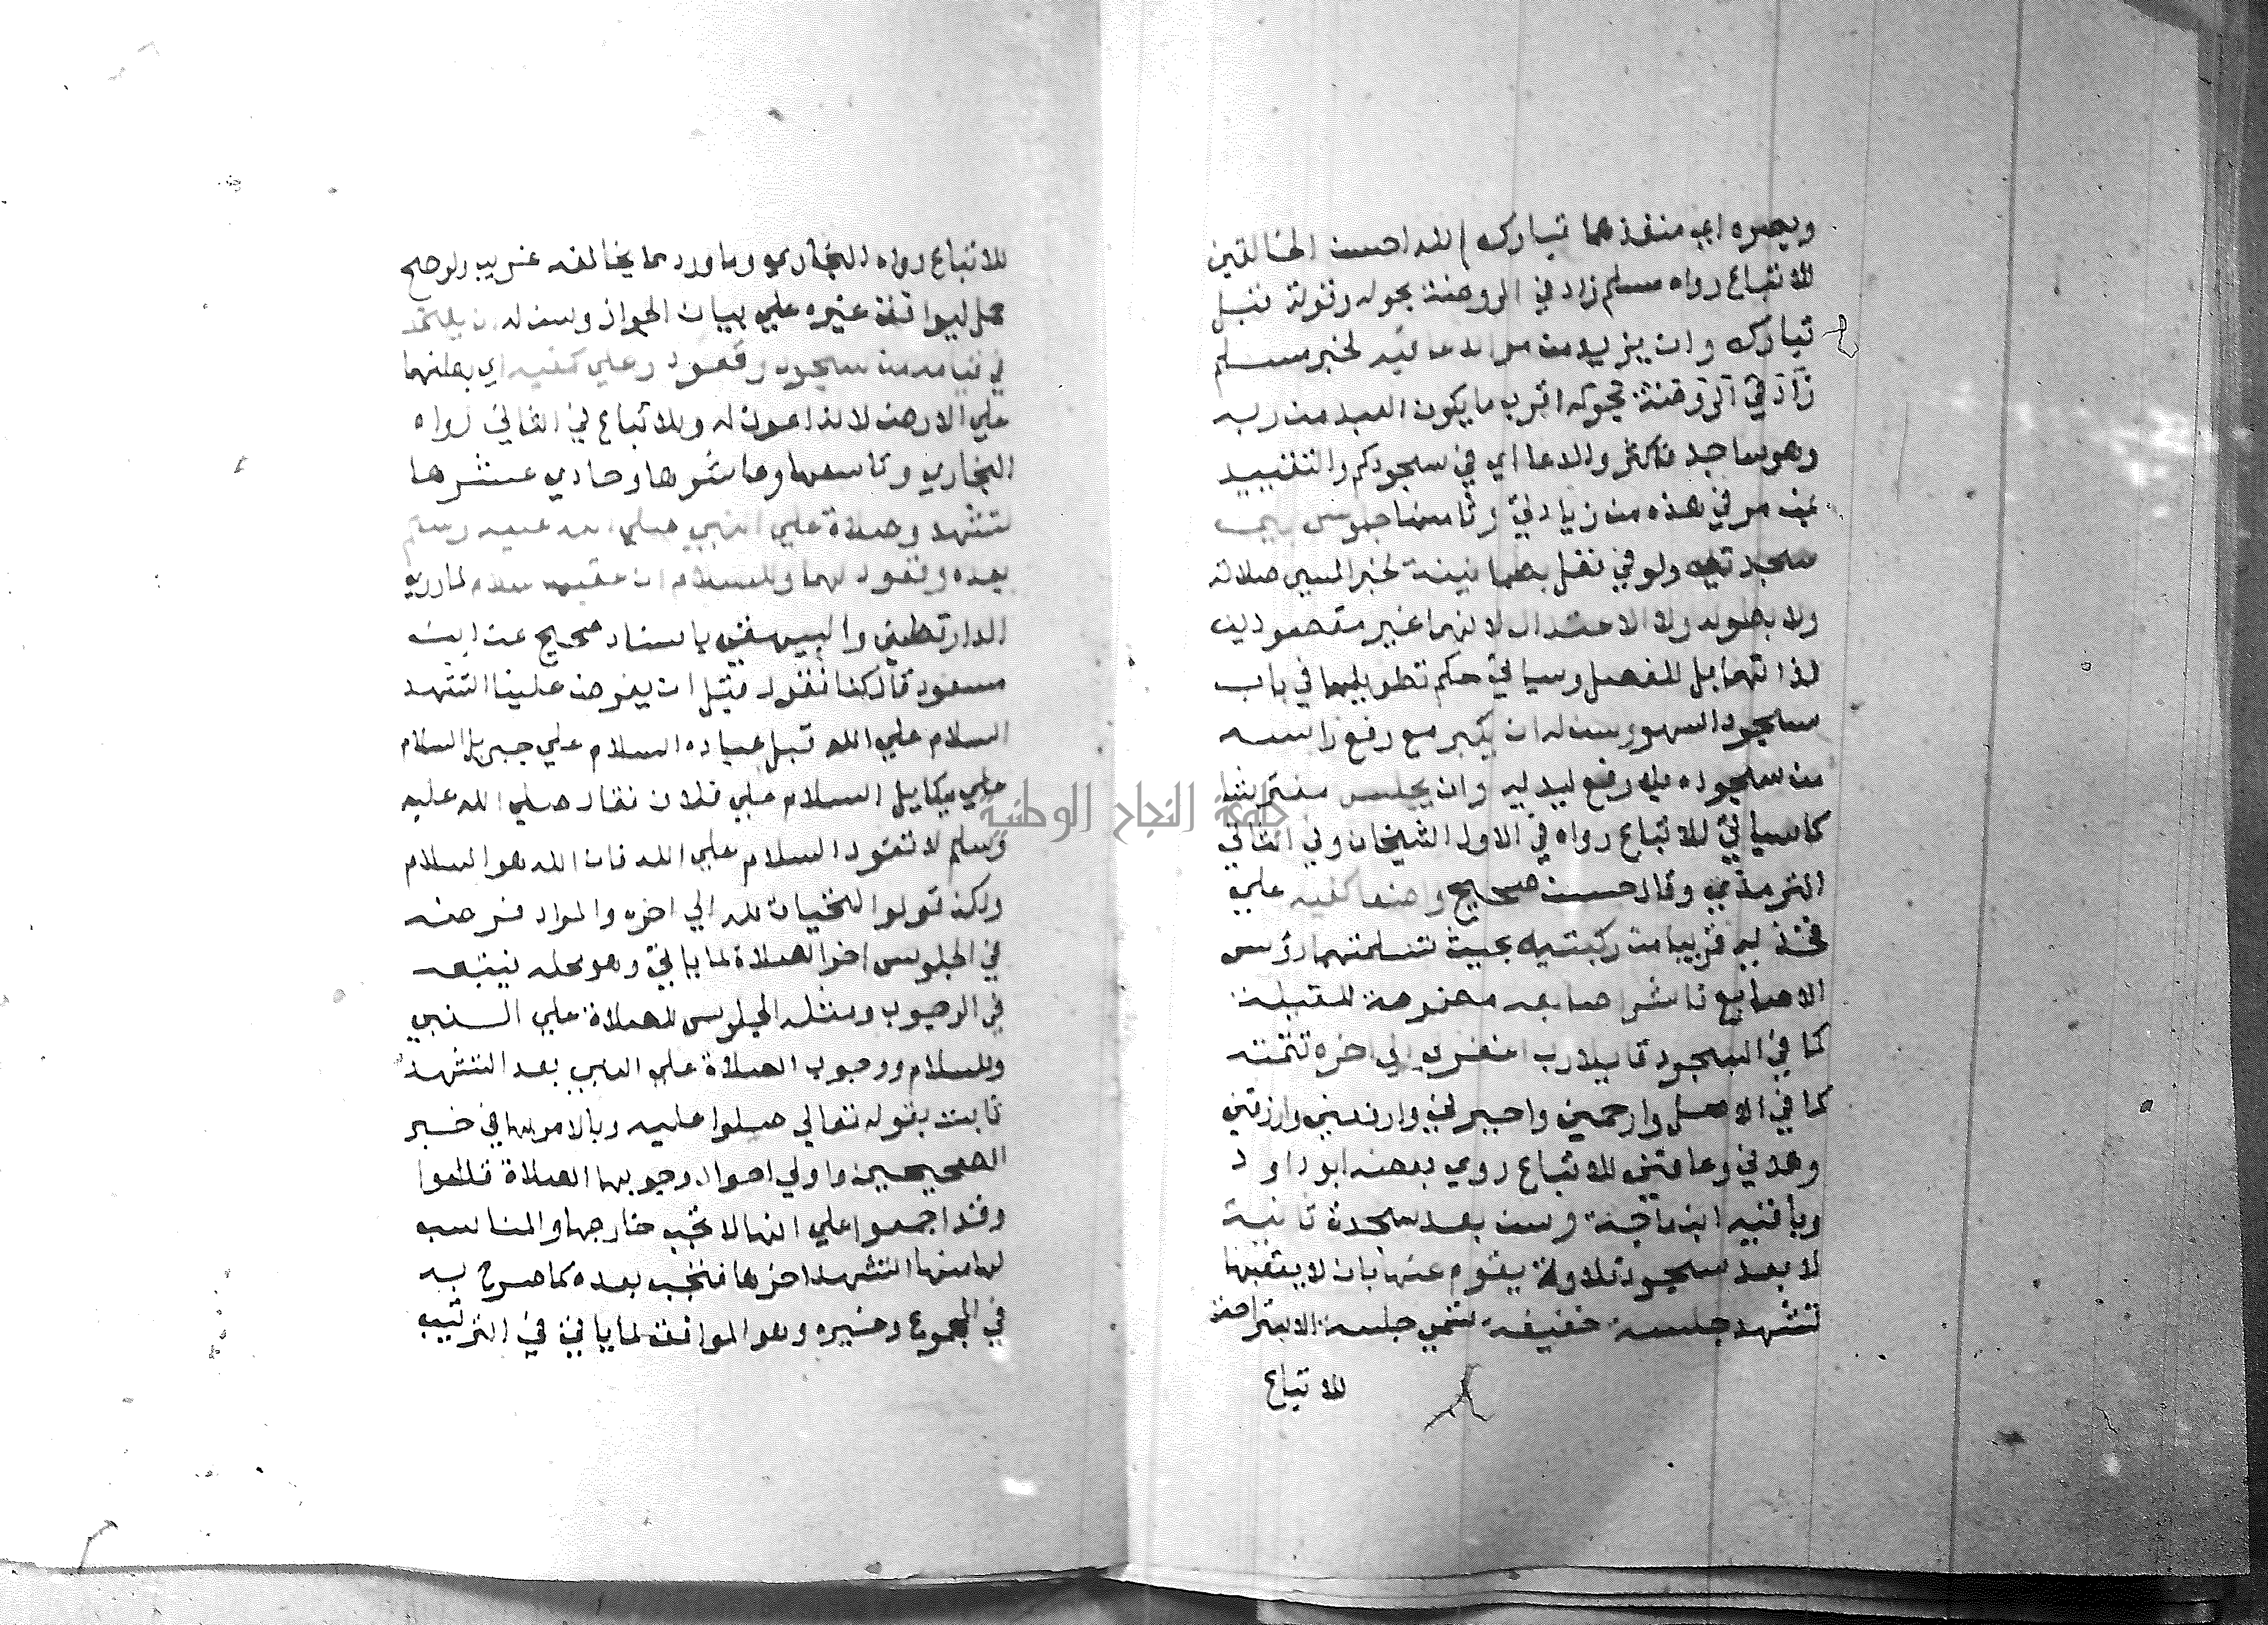 وبصره اي منفذهما تبارك الله احسن الخالقين
للاتباع رواه مسلم زاد في الروضة بحوله وقوته قبل
تبارك وان يزيد من مر الدعا فيه لخبر مسلم
زاد في الروضة بحوله اقرب ما يكون العبد من ربه
وهو ساجد فاكثروا الدعا اي في سجودكم والتقييد
بمن مر في هذه من زيادتي وثامنها جلوس بين
سجدتيه ولو في نفل بطمانينة لخبر المسي صلاته
ولا يطوله ولا الاعتدال لانهما غير مقصودين
لذاتهما بل للفصل وسياتي حكم تطويلهما في باب
سجود السهو وسن له ان يكبر مع رفع راسه
من سجوده بلا رفع ليديه وان يجلس مفترشا
كما سياتي للاتباع رواه في الاول الشيخان وفي الثاني
الترمذي وقال حسن صحيح واضعا كفيه علي
فخذيه قريبا من ركبتيه بحيث تسامتهما رؤس
الاصابع ناشرا اصابعه مضمومة للقبلة
كما في السجود قايلا رب اغفر لي الي اخره تتمته
كما في الاصل وارحمني واجبرني وارفعني وارزقني
وهدني وعافني للاتباع روي بعضه ابو داود
وباقيه ابن ماجة وسن بعد سجدة ثانية
لا بعد سجود تلاوة يقوم عنها بان لا يعقبها
تشهد جلسة خفيفة تسمي جلسة الاستراحة
للاتباع
للاتباع رواه البخاري وما ورد مما يخالفه غريب ولو صح
حمل ليوافق غيره علي بيان الجواز وسن له ان يعتمد
في قيامه من سجود وقعود علي كفيه اي بطنهما
علي الارض لانه اعون له وللاتباع في الثاني رواه
البخاري وتاسعها وعاشرها وحادي عشرها
تشهد وصلاة علي النبي صلي الله عليه وسلم
بعده وقعود لهما وللسلام ان عقبهما سلام لما روي
الدارقطني والبيهقي باسناد صحيح عن ابن
مسعود قال كنا نقول قبل ان يفرض علينا التشهد
السلام علي الله قبل عباده السلام علي جبريل السلام
علي ميكايل السلام علي فلان فقال صلي الله عليه
وسلم لا تقولوا السلام علي الله فان الله هو السلام
ولكن قولوا التحيات لله الي اخره والمراد فرضه
في الجلوس اخر الصلاة لما ياتي وهو محله فيتبعه
في الوجوب ومثله الجلوس للصلاة علي النبي
وللسلام ووجوب الصلاة علي النبي بعد التشهد
ثابت بقوله تعالي صلوا عليه وبالامر بها في خبر
الصحيحين واولي احوال وجوبها الصلاة قالوا
وقد اجمعوا علي انها لا تجب خارجها والمناسب
لها منها التشهد اخرها فتجب بعده كما صرح به
في المجموع وغيره وهو الموافق لما ياتي في الترتيب